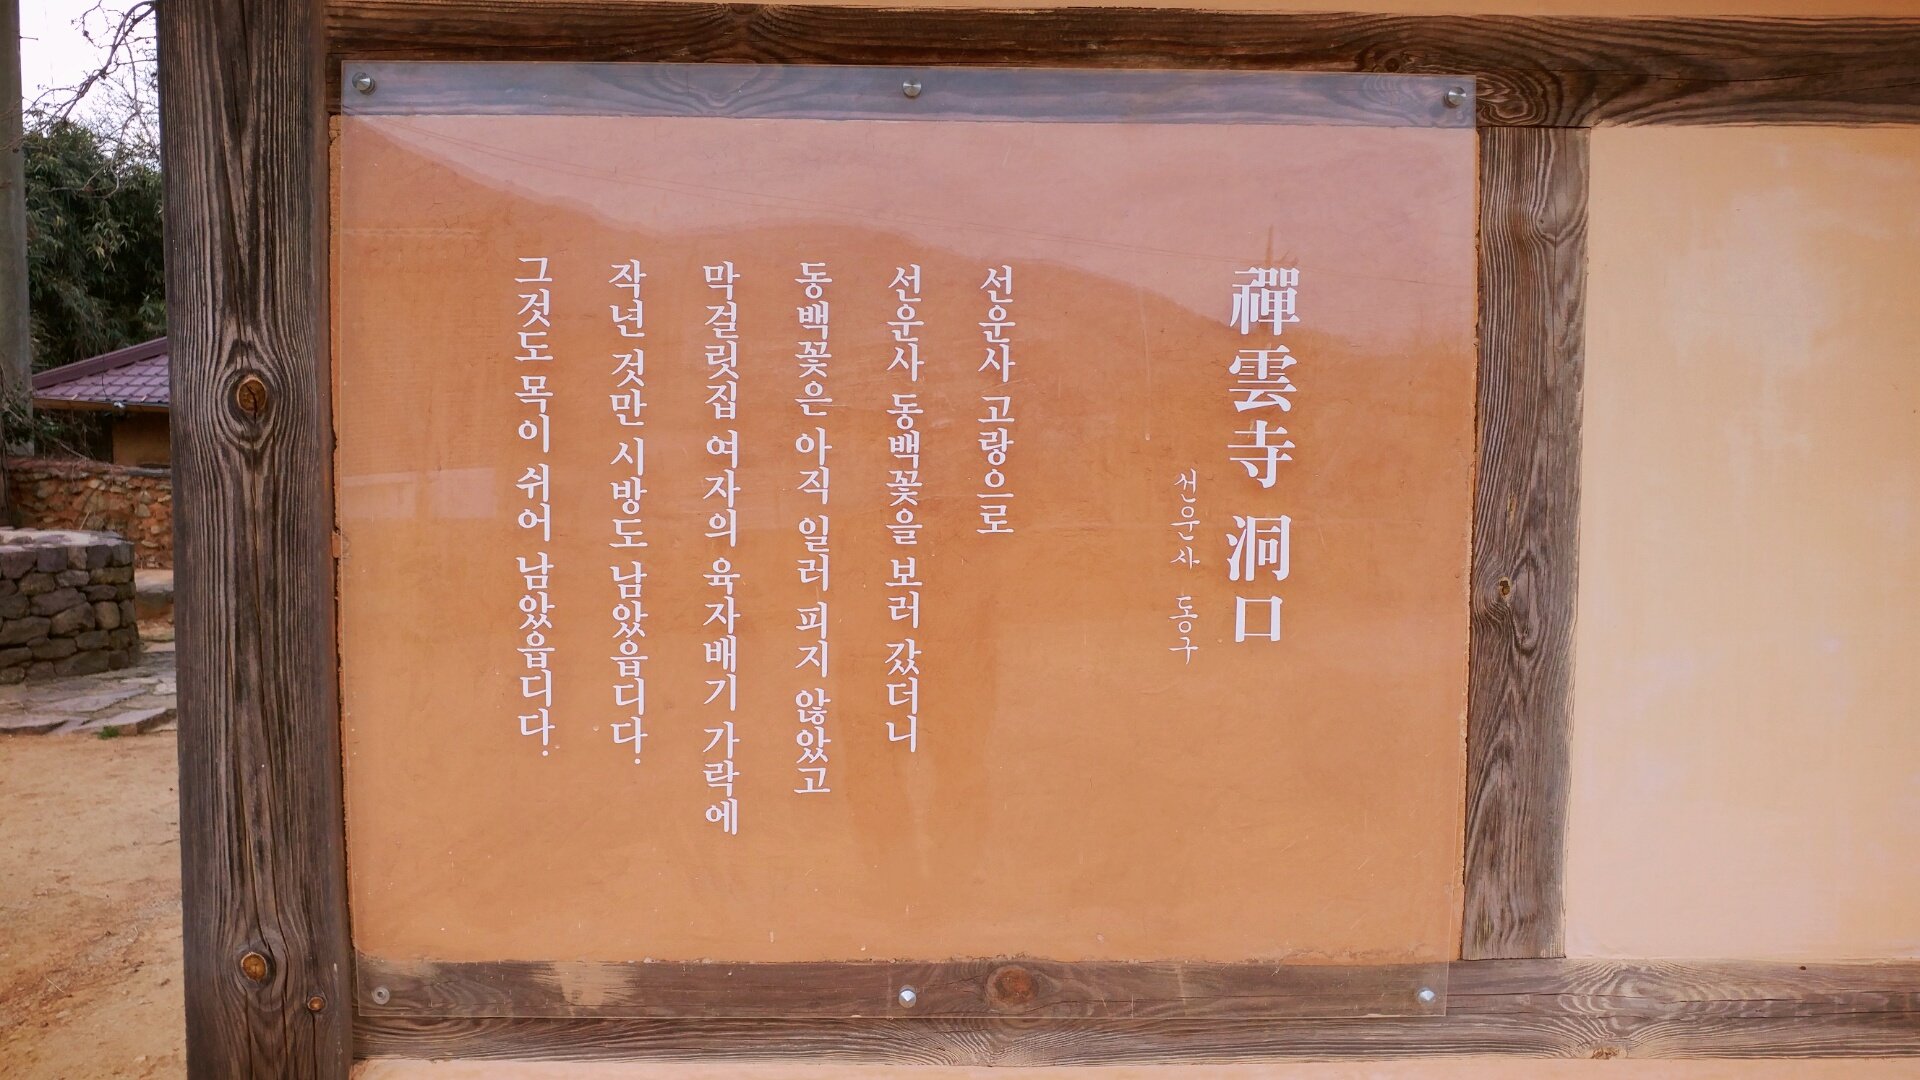 禪雲寺 洞口
선운사 동구
선운사 고랑으로
선운사 동백꽃을 보러 갔더니
동백꽃은 아직 일러 피지 않았고
막걸릿집 여자의 육자배기 가락에
작년 것만 시방도 남았읍디다.
그것도 목이 쉬어 남았읍디다.